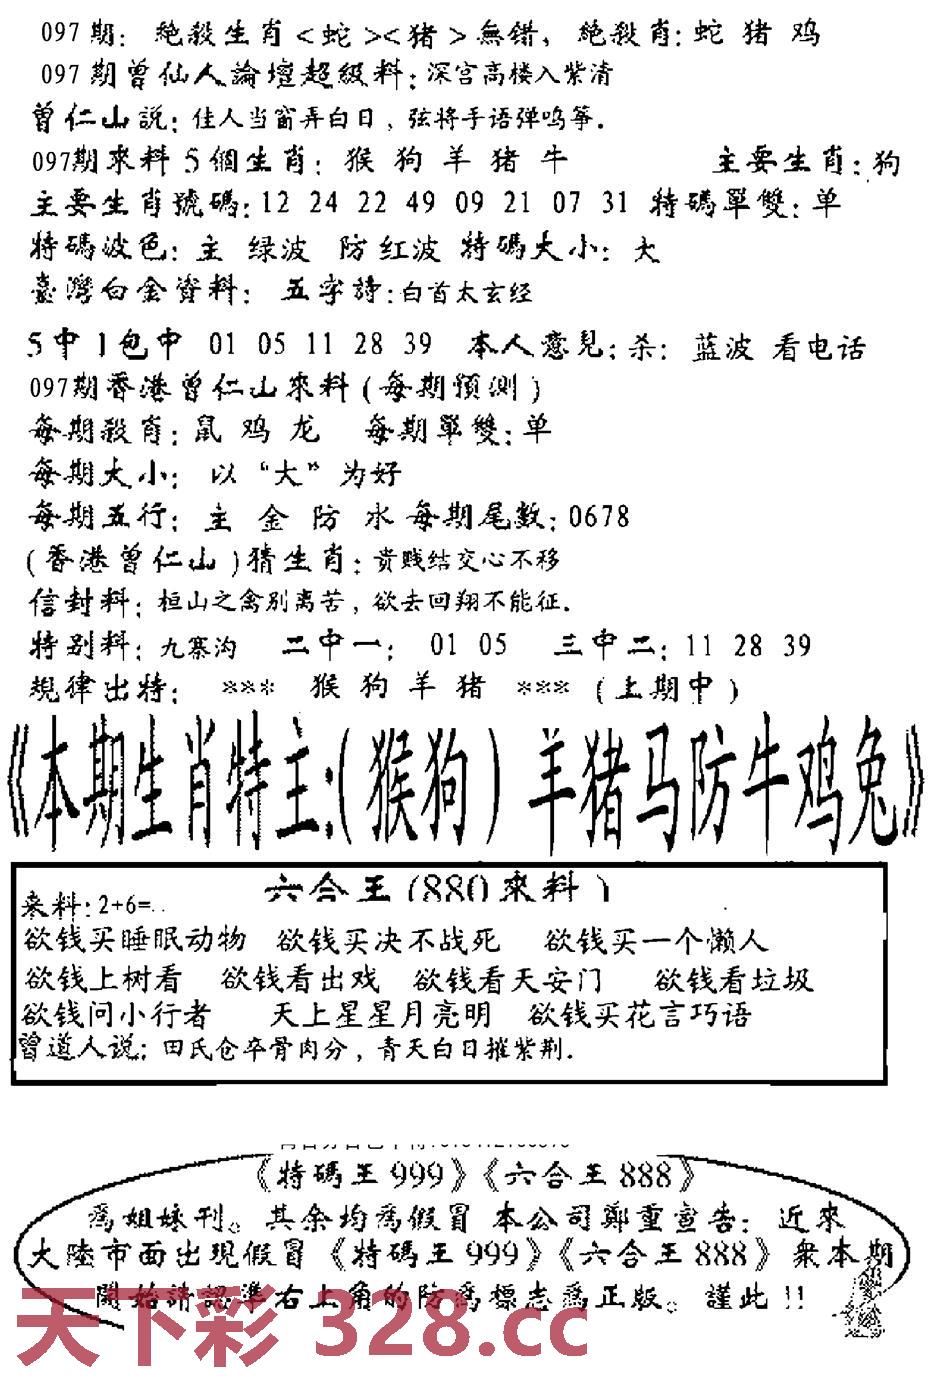 097期: 絶殺生肖<蛇><猪>無错, 絶殺肖: 蛇 猪 鸡
097期曾仙人論壇超級料: 深宫高楼入紫清
曾仁山説: 佳人当窗弄白日, 弦将手语弹鸣筝.
097期來料5個生肖: 猴 狗 羊 猪 牛 主要生肖: 狗
主要生肖號碼: 12 24 22 49 09 21 07 31 特碼單雙: 单
特碼波色: 主 绿波 防红波 特碼大小: 大
臺灣白金資料: 五字詩: 白首太玄经
5中1包中 01 05 11 28 39 本人意見: 杀: 蓝波 看电话
097期香港曾仁山來料(每期預測)
每期殺肖: 鼠 鸡 龙 每期單雙: 单
每期大小: 以“大”为好
每期五行: 主 金 防 水 每期尾數: 0678
(香港曾仁山)猜生肖: 贵贱结交心不移
信封料: 桓山之禽别离苦, 欲去回翔不能征.
特别料: 九寨沟 二中一: 01 05 三中二: 11 28 39
規律出特: *** 猴 狗 羊 猪 *** (上期中)
《本期生肖特主:(猴狗)羊猪马防牛鸡兔》
六合王(880來料)
来料: 2+6=..
欲钱买睡眠动物 欲钱买决不战死 欲钱买一个懒人
欲钱上树看 欲钱看出戏 欲钱看天安门 欲钱看垃圾
欲钱问小行者 天上星星月亮明 欲钱买花言巧语
曾道人说: 田氏仓卒骨肉分, 青天白日摧紫荆.
《特碼王999》《六合王888》
爲姐妹刊。其余均爲假冒 本公司鄭重宣告: 近來
大陸市面出現假冒《特碼王999》《六合王888》衆本期
開始請認準右上角的防爲標志爲正版。謹此!!
天下彩 328.cc